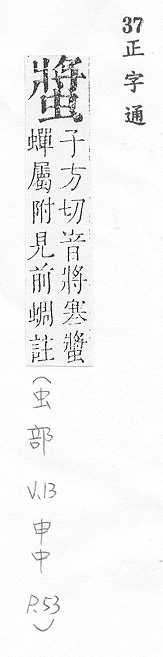 37
正字通
螿
子方切音將寒螿
蟬屬附見前蜩註
(虫部 V.13 申中 P.53)